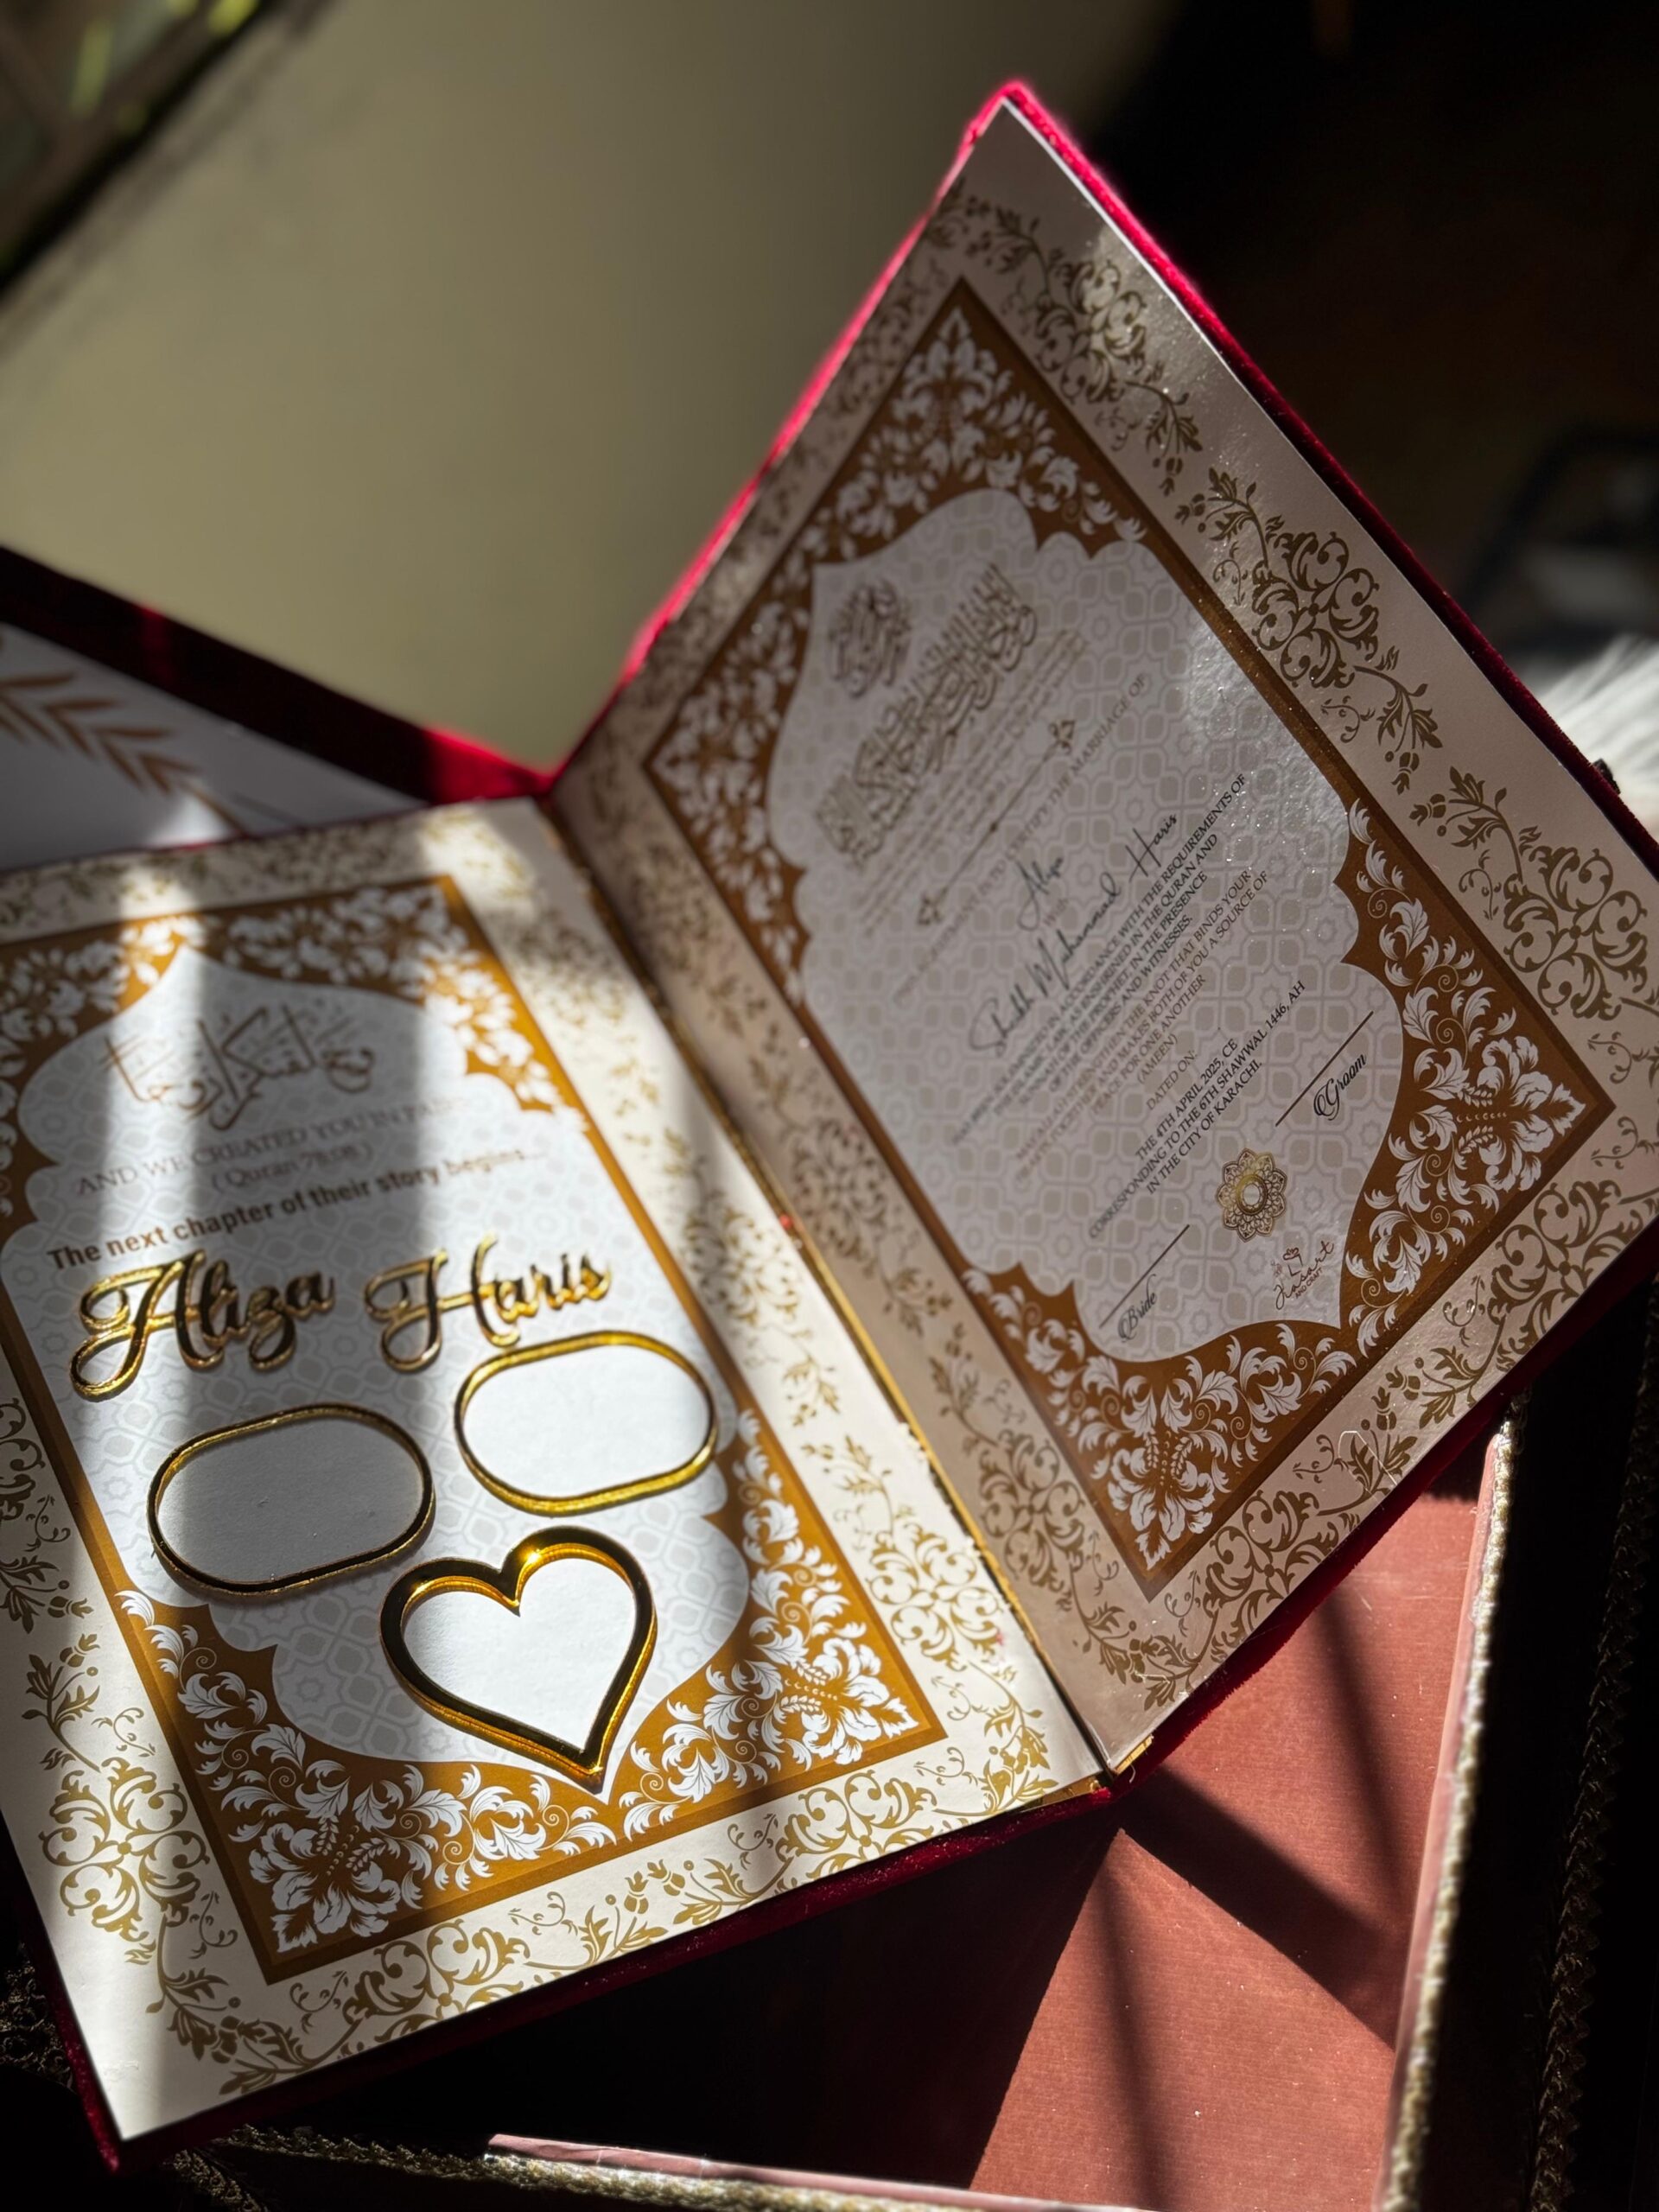 وخلقنكم ازواجا
AND WE CREATED YOU IN PAIRS
( Quran 78:08 )
The next chapter of their story begins...
Aliza Haris
THE MARRIAGE OF
Aliza
With
Shaikh Muhammad Haris
IN ACCORDANCE WITH THE REQUIREMENTS OF
THE ISLAMIC LAW, AS ENSHRINED IN THE QURAN AND
SUNNAH OF THE PROPHET, IN THE PRESENCE
OF THE OFFICERS AND WITNESSES.
MAY ALLAH STRENGTHEN THE KNOT THAT BINDS YOUR
TOGETHER AND MAKES BOTH OF YOU A SOURCE OF
PEACE FOR ONE ANOTHER
(AMEEN)
DATED ON:
THE 4TH APRIL 2025, CE
CORRESPONDING TO THE 6TH SHAWWAL 1446, AH
IN THE CITY OF KARACHI.
Bride
Groom